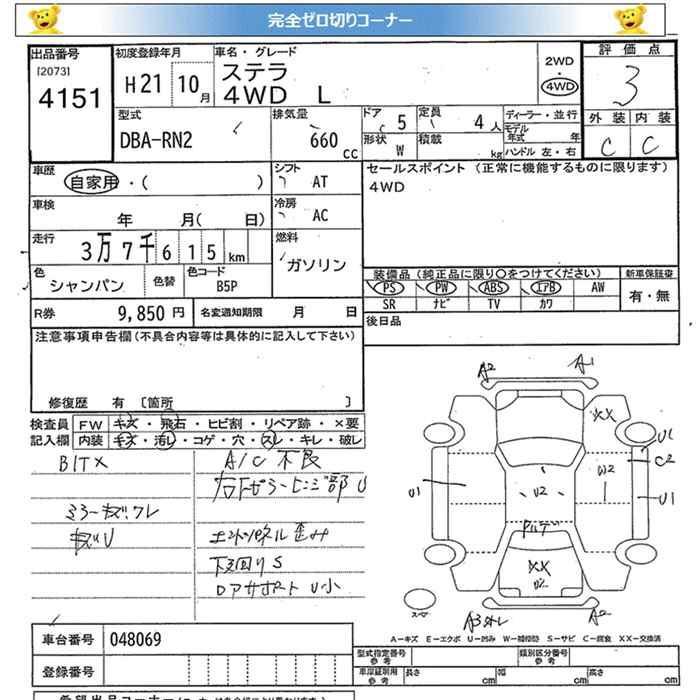 完全ゼロ切りコーナー
出品番号
[2073]
4151
初度登録年月
H21 10月
車名・グレード
ステラ
4WD L
2WD
4WD
評価点
3
外装 内装
C C
型式
DBA-RN2
排気量
660 cc
ドア 5
形状 W
定員 4人
積載 kg
ディーラー・並行
モデル年式 年
ハンドル 左・右
車歴
自家用・( )
シフト
AT
車検
年 月( 日)
冷房
AC
走行
3万7千615km
燃料
ガソリン
色
シャンパン
色替
色コード
B5P
R券 9,850円
名変通知期限 月 日
セールスポイント (正常に機能するものに限ります)
4WD
装備品(純正品に限り○をつけてください)
PS PW ABS エアB AW
SR ナビ TV カワ
新車保証書
有・無
後日品
注意事項申告欄(不具合内容等は具体的に記入して下さい)
修復歴 有 〔箇所 〕
検査員記入欄
FW キズ・飛石・ヒビ割・リペア跡・×要
内装 キズ・汚レ・コゲ・穴・スレ・キレ・破レ
A/C 不良
ミラーキズワレ
キズU
下回りS
ロアサポート U小
A2
A1
XX
U1
C2
U1
W2
U1
U2
XX
U2
スペア
A2
A-キズ E-エクボ U-凹み W-補修跡 S-サビ C-腐食 XX-交換済
車台番号 048069
登録番号
型式指定番号 参考
類別区分番号 参考
車庫証明用 参考
長さ 幅 高さ